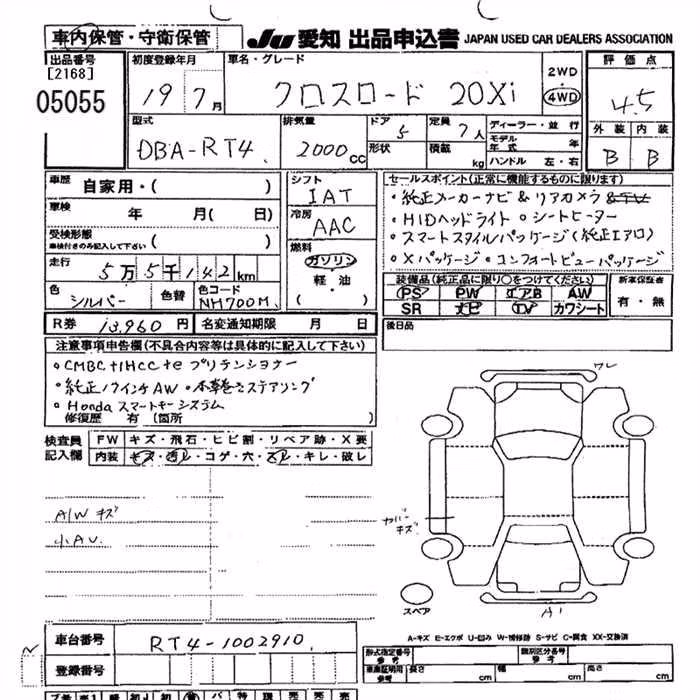 車内保管・守衛保管
JU 愛知 出品申込書 JAPAN USED CAR DEALERS ASSOCIATION
出品番号
[2168]
05055
初度登録年月
19 7月
車名・グレード
クロスロード 20Xi
2WD
4WD
評価点
4.5
外装 内装
B B
型式
DBA-RT4
排気量
2000cc
ドア
5
形状
定員
7人
積載 kg
ディーラー・並行
モデル年式 年
ハンドル 左・右
車歴
自家用・( )
車検
年 月( 日)
受検形態
車検付きのみ記入して下さい
( )
走行
5万5千142km
色
シルバー
色替
色コード
NH700M
シフト
IAT
冷房
AAC
燃料
ガソリン
軽油
( )
R券 13,960円 名変通知期限 月 日
セールスポイント(正常に機能するものに限ります)
・純正メーカーナビ&リアカメラ
・HIDヘッドライト ・シートヒーター
・スマートスタイルパッケージ(純正エアロ)
・Xパッケージ・コンフォートビューパッケージ
装備品(純正品に限り○をつけてください)
PS PW エアB AW
SR ナビ TV カワシート
新車保証書
有・無
後日品
注意事項申告欄(不具合内容等は具体的に記入して下さい)
・CMBC+IHCC+eプリテンショナー
・純正17インチAW ・本革巻きステアリング
・Hondaスマートキーシステム
修復歴 有 (箇所 )
検査員
記入欄
FW キズ・飛石・ヒビ割・リペア跡・X要
内装 キズ・汚レ・コゲ・穴・スレ・キレ・破レ
A/Wキズ
小AU.
ワレ
カバーキズ
スペア
A1
A-キズ E-エクボ U-凹み W-補修跡 S-サビ C-腐食 XX-交換済
車台番号
RT4-1002910
登録番号
型式指定番号
参考
類別区分番号
参考
車庫証明用
参考
長さ cm
幅 cm
高さ cm